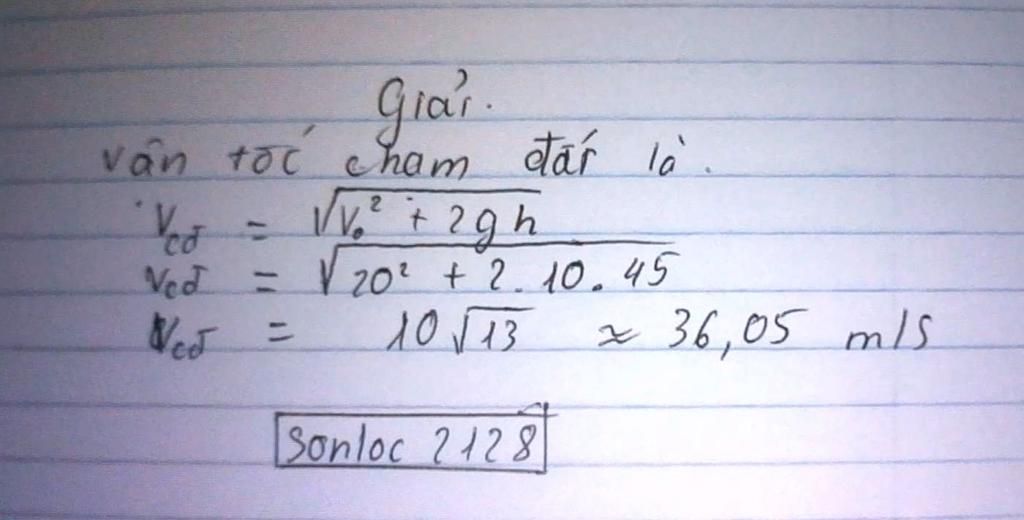 Giải.
vận tốc chạm đất là.
Vcđ = √V₀² + 2gh
Vcđ = √20² + 2.10.45
Vcđ = 10√13 ≈ 36,05 m/s
Sonloc 2128